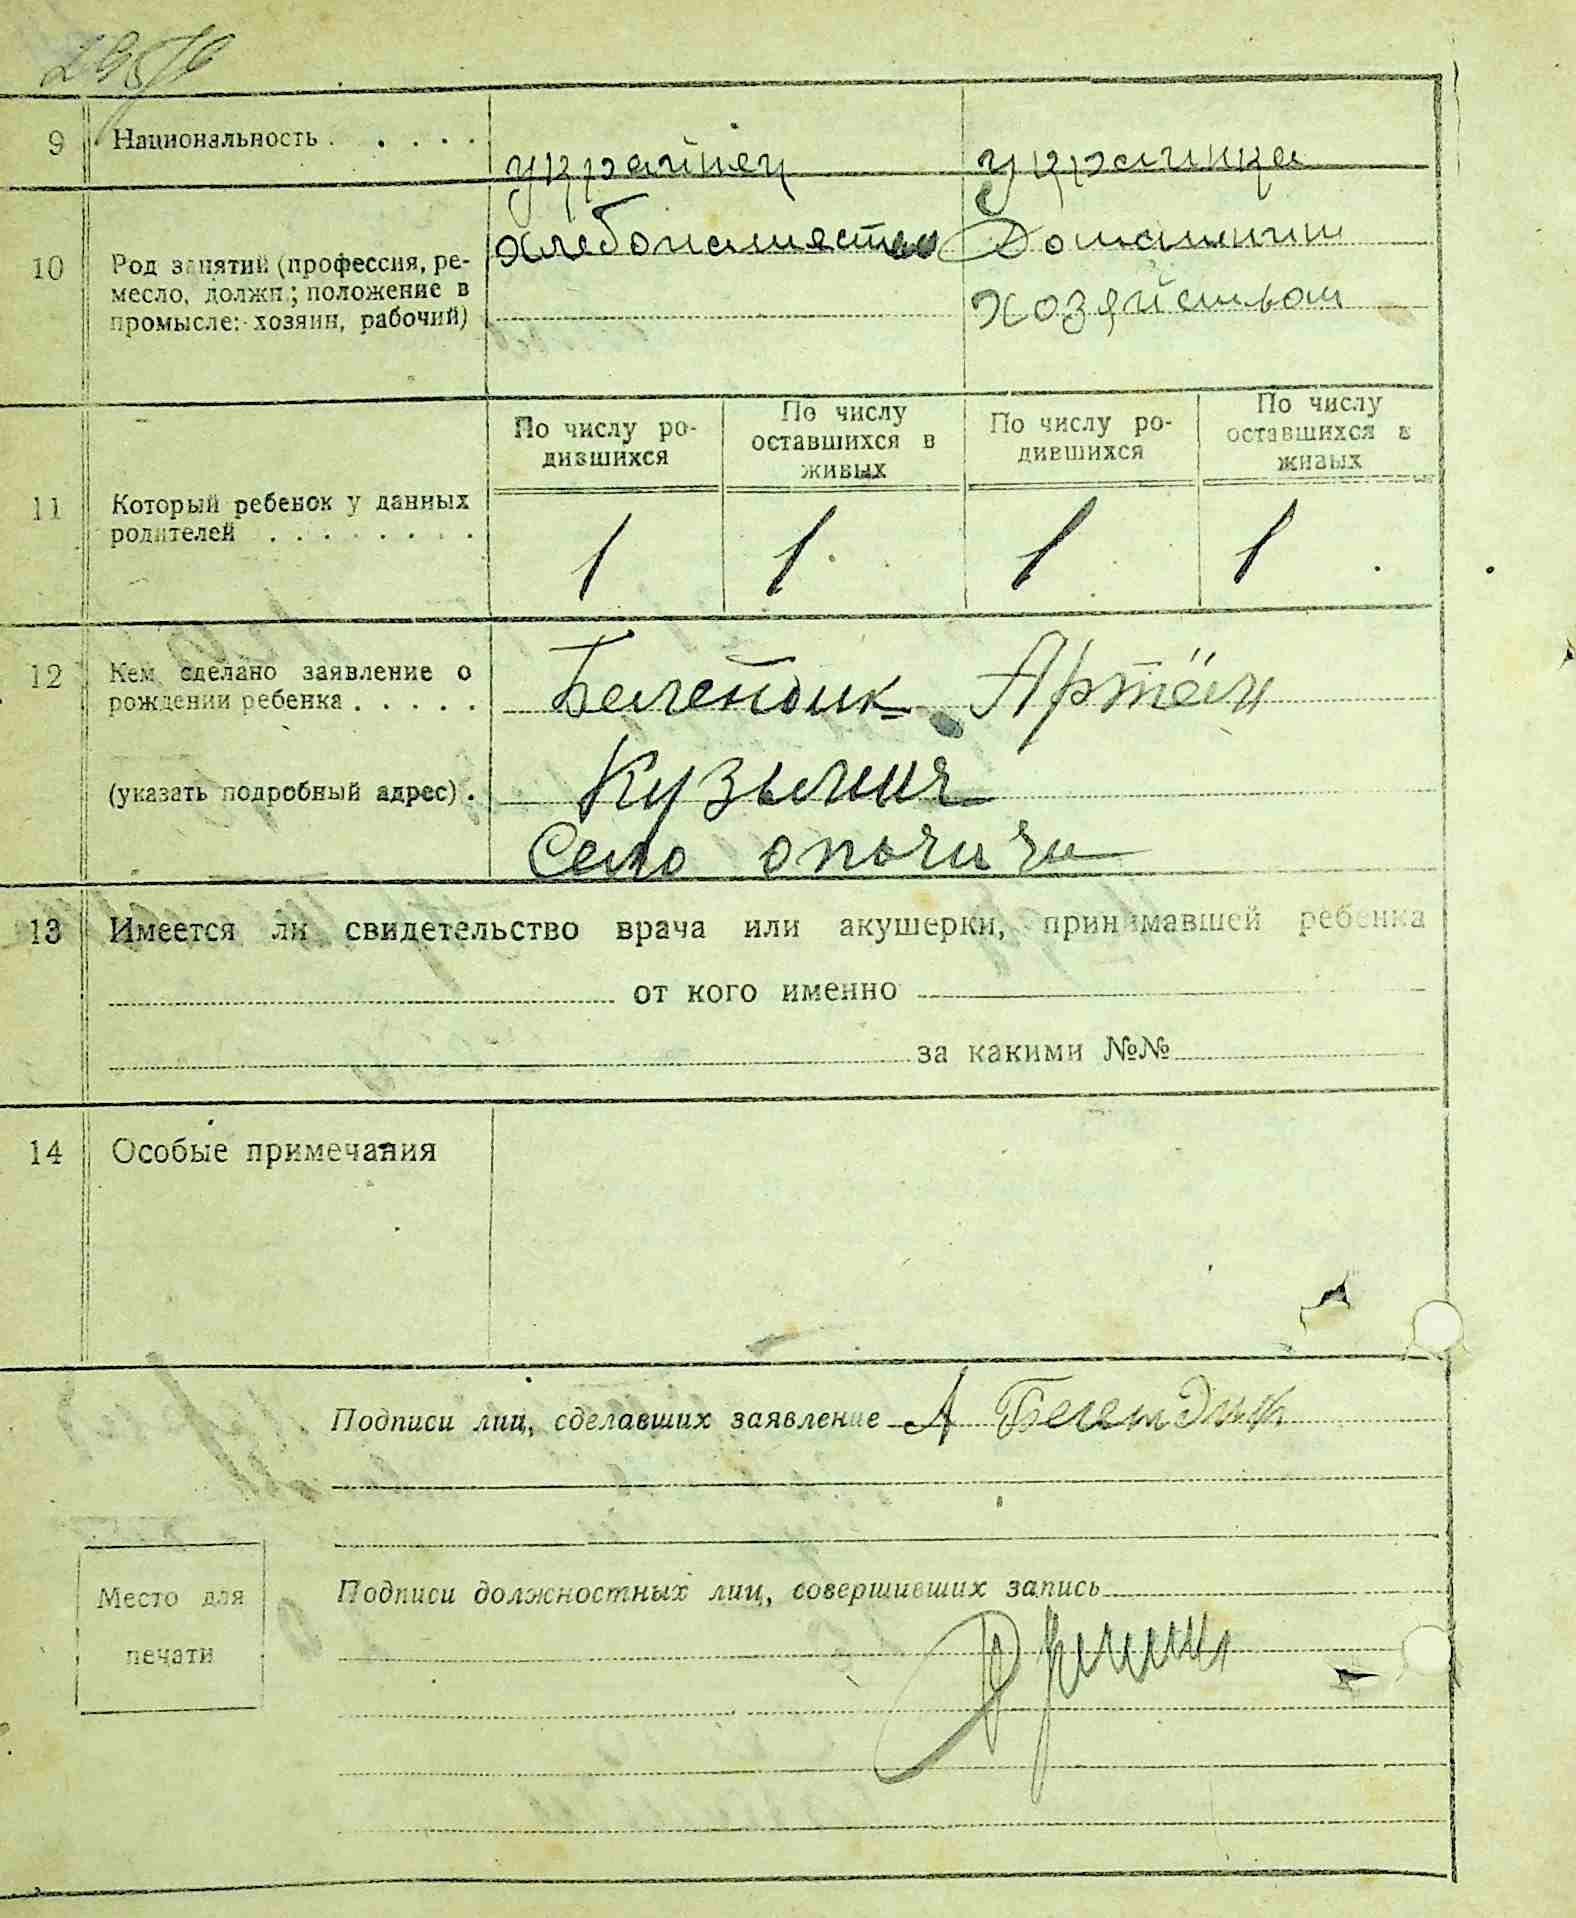 9 Национальность . . . . . украинец украинка
10 Род занятий (профессия, ре-
месло, должн; положение в
промысле: хозяин, рабочий)
хлебопашество Домашним
хозяйством
11 Который ребенок у данных
родителей . . . . . . . .
По числу ро-
дившихся
По числу
оставшихся в
живых
По числу ро-
дившихся
По числу
оставшихся в
живых
1 1 1 1
12 Кем сделано заявление о
рождении ребенка . . . . .
(указать подробный адрес) .
Артём
Кузьмич
Село опачичи
13 Имеется ли свидетельство врача или акушерки, принимавшей ребенка
от кого именно
за какими №№
14 Особые примечания
Подписи лиц, сделавших заявление А
Подписи должностных лиц, совершивших запись
Место для
печати